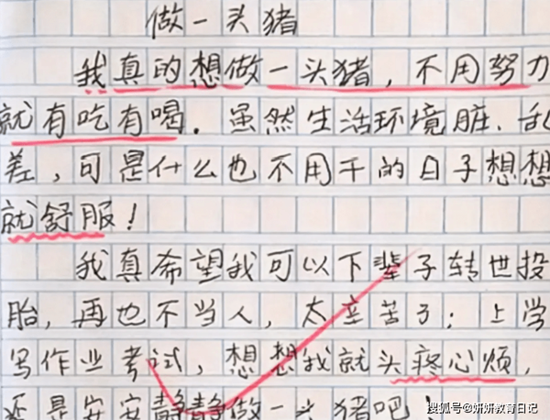 做一头猪
我真的想做一头猪，不用努力
就有吃有喝．虽然生活环境脏、乱
差，可是什么也不用干的日子想想
就舒服！
我真希望我可以下辈子转世投
胎，再也不当人，太辛苦了；上学
写作业考试，想想我就头疼心烦，
还是安安静静做一头猪吧！
搜狐号@妍妍教育日记